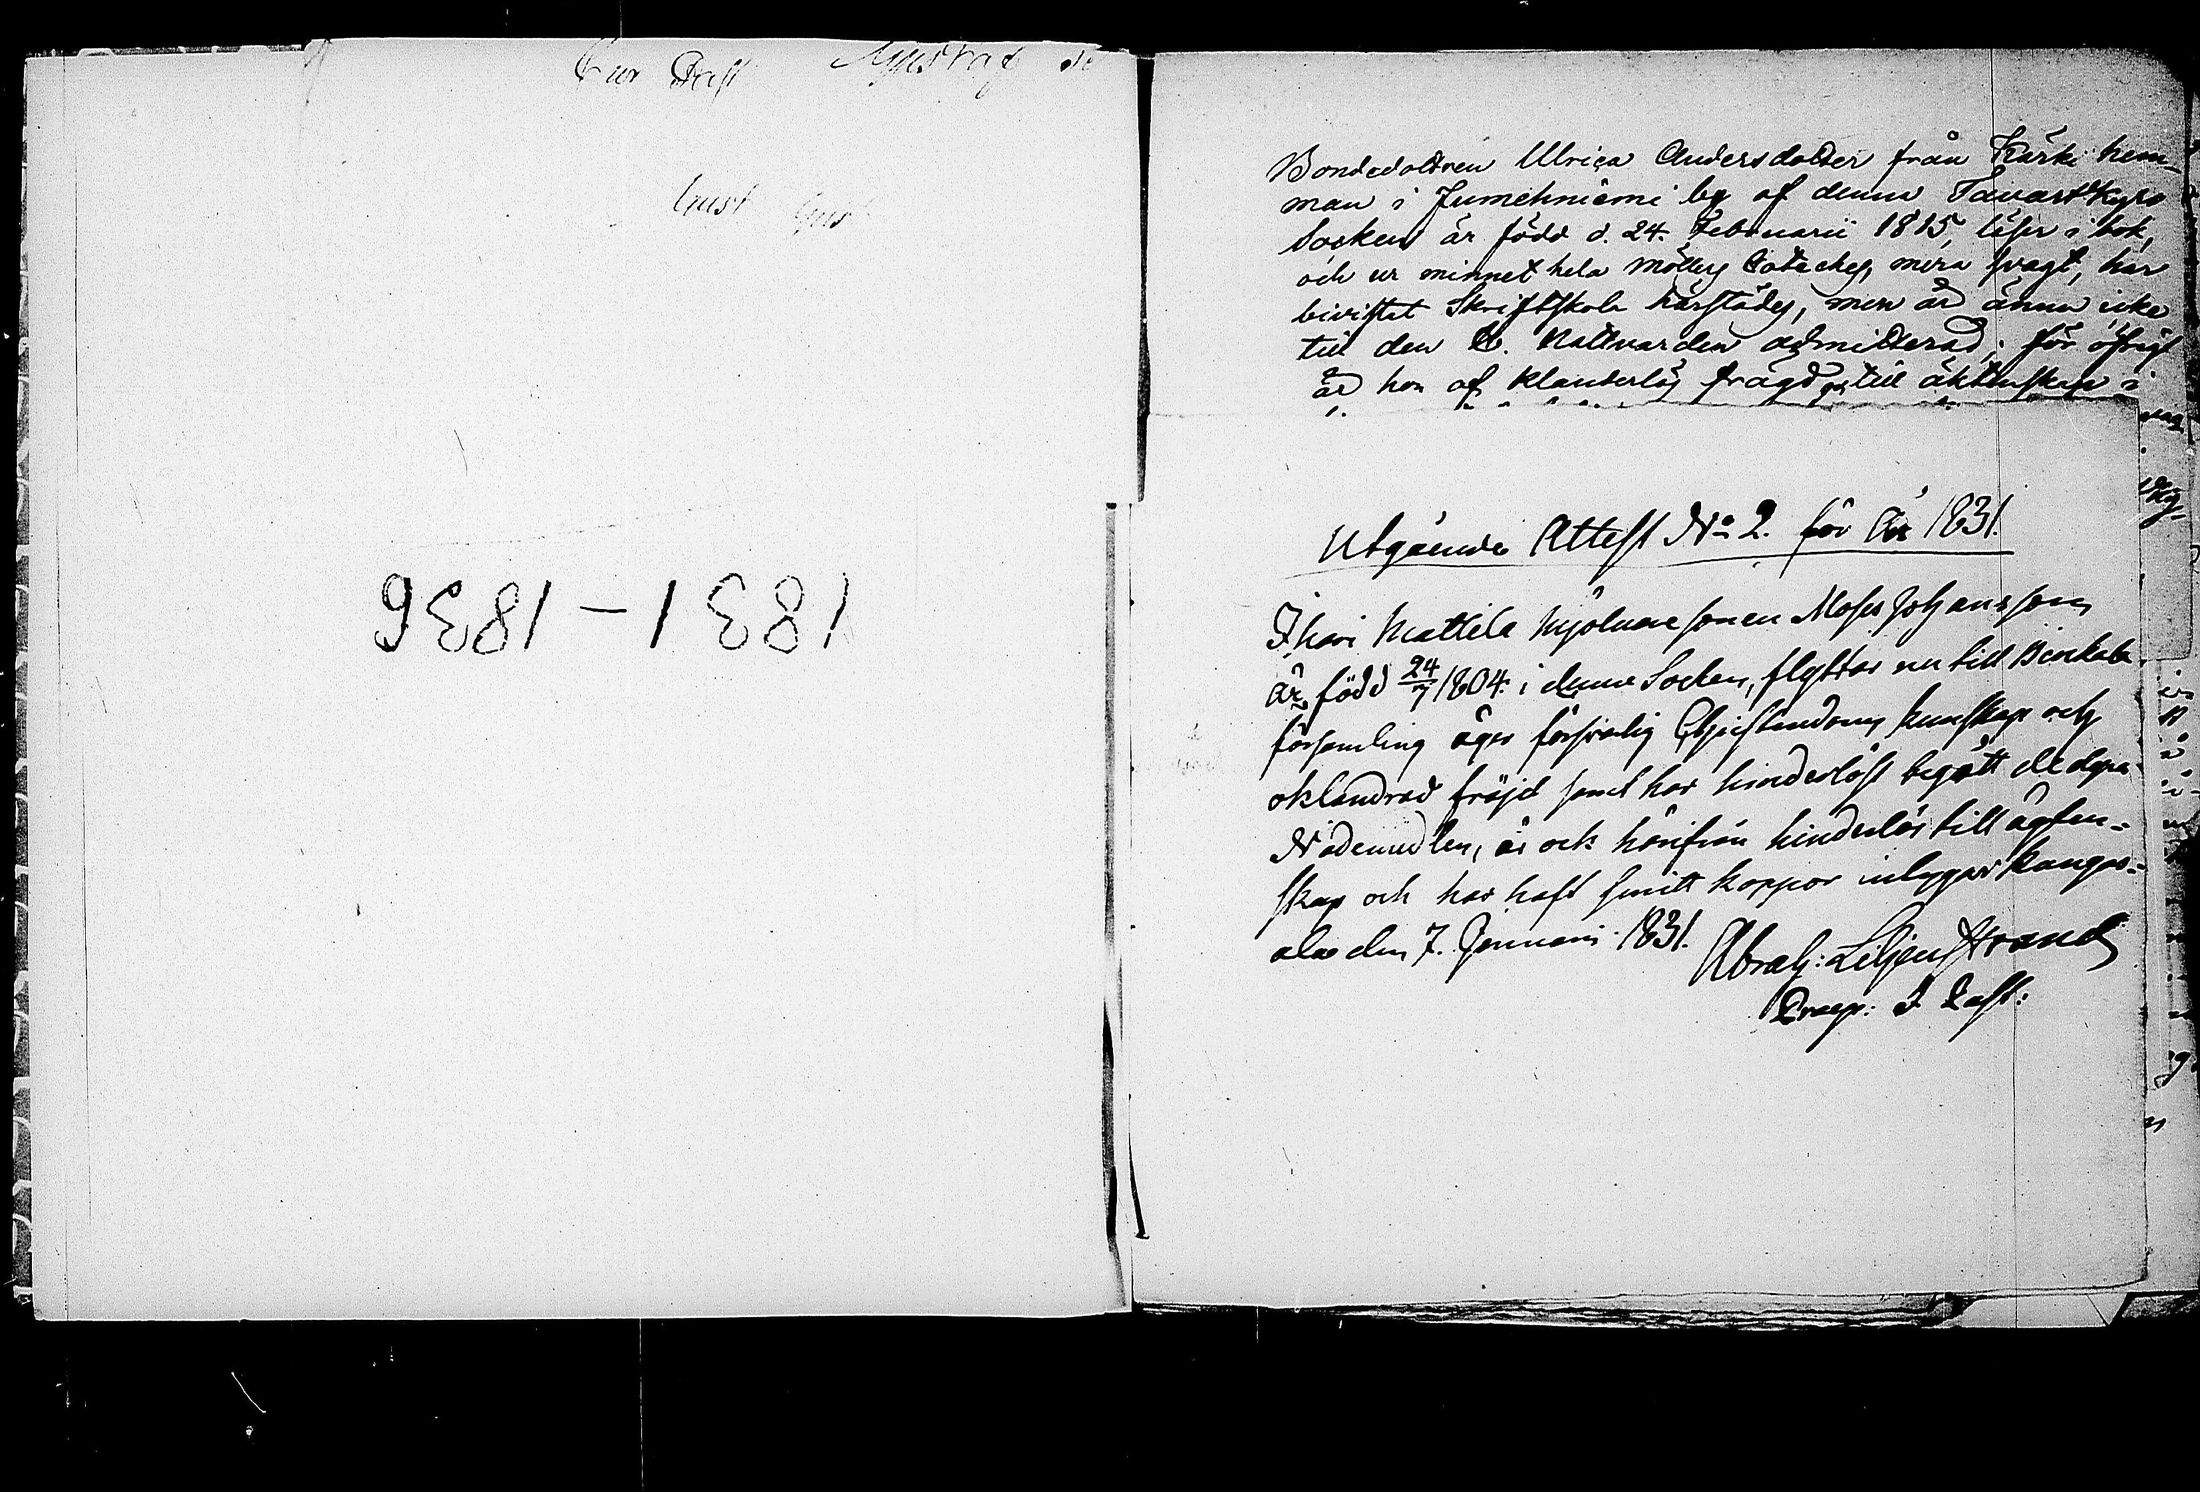 Gustaf
Gust Gust
1831–1836
Bondedottren Ulrica Andersdotter från Kärki hem-
man i Jumehniemi by af denna Tavastkyro
Socken är född d. 24. Februarii 1815, läser i bok,
och ur minnet hela Möllers Cateches, mera svagt, har
bivistat Skriftskola härstädes, men är ännu icke
till den H. Nattvarden admitterad; för öfrigt
är hon af klanderlös frägd och till äktenskap i
Utgående Attest No 2. för År 1831.
Ihari Mattila Mjölnare sonen Moses Johansson
är född 24/7 1804. i denna Socken, flyttar nu till Birkala
församling äger försvarlig Christendoms kunskap och
oklandrad fräjd samt har hinderlöst begått de dyra
Nådemedlen, är ock härifrån hinderlös till ägten-
skap och har haft smitt koppor intygar Kangas-
ala den 7. Januari 1831.
Abrah: Liljenstrand
Praep: & Past: